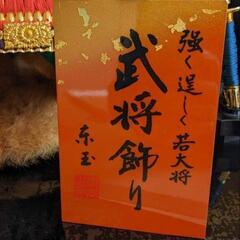 強く逞しく若大将
武将飾り
東玉